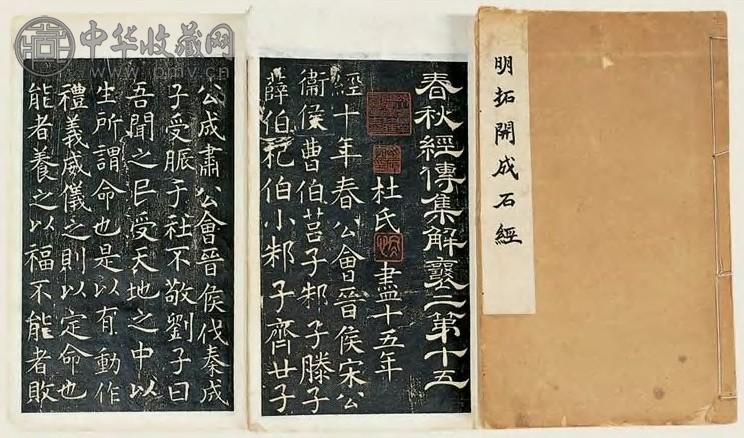 明拓開成石經
春秋經傳集解襄二第十五
杜氏 盡十五年
經十年春公會晉侯宋公
衞侯曹伯莒子邾子滕子
薛伯杞伯小邾子齊世子
公成肅公會晉侯伐秦成
子受脤于社不敬劉子曰
吾聞之民受天地之中以
生所謂命也是以有動作
禮義威儀之則以定命也
能者養之以福不能者敗
中华收藏网